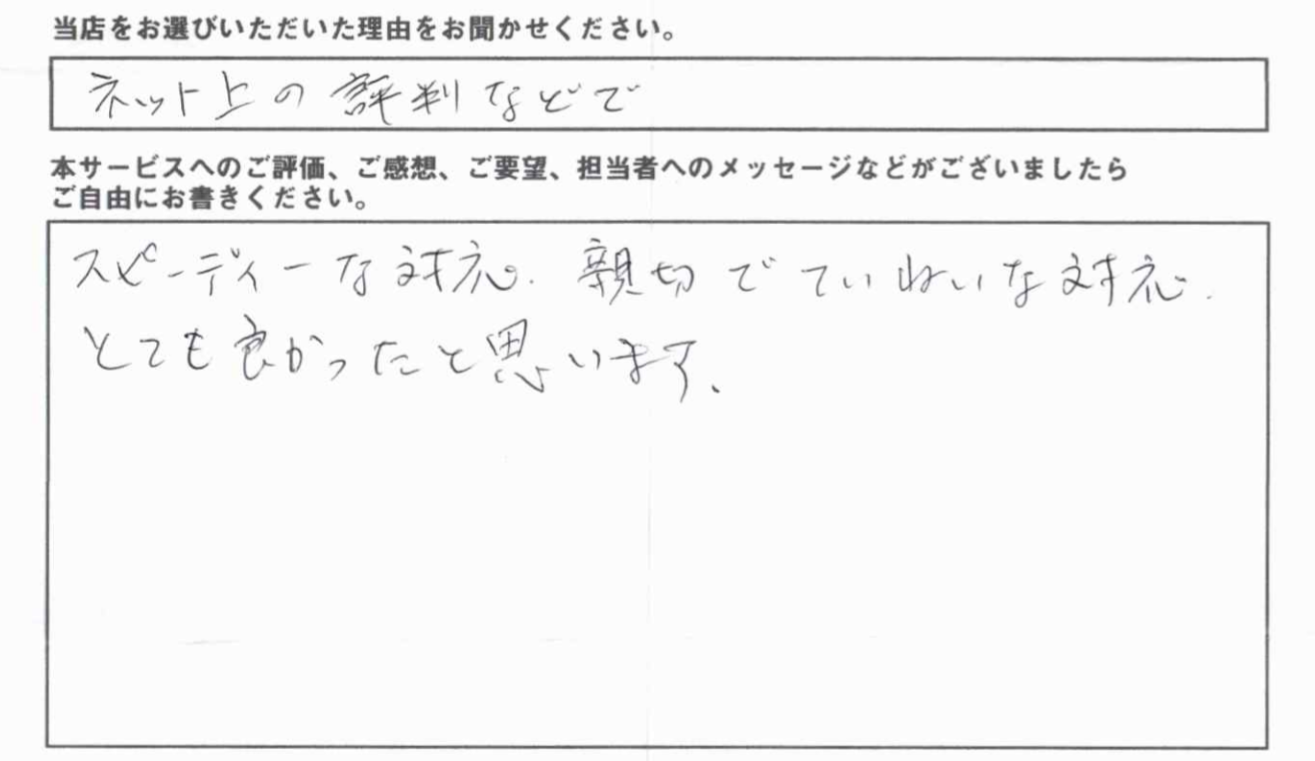 当店をお選びいただいた理由をお聞かせください。
ネット上の評判などで
本サービスへのご評価、ご感想、ご要望、担当者へのメッセージなどがございましたら
ご自由にお書きください。
スピーディーな対応. 親切でていねいな対応.
とても良かったと思います、